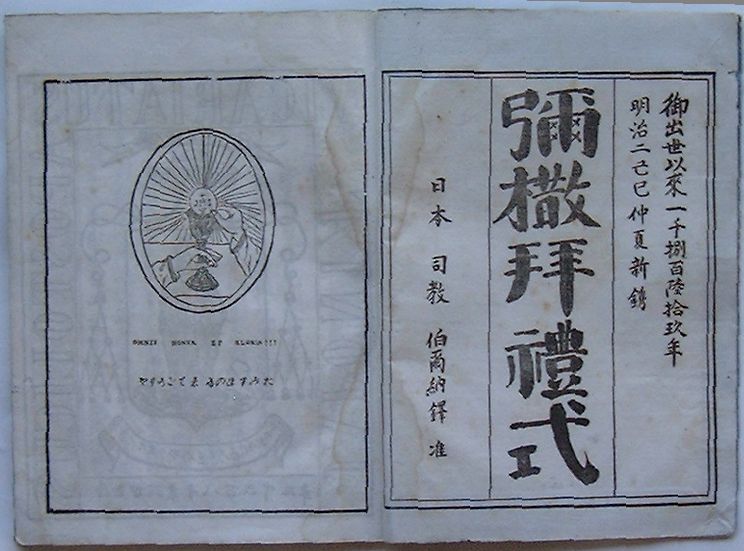 御出世以來一千捌百陸拾玖年
明治二己巳仲夏新鐫
彌撒拜禮式
日本 司教 伯爾納鐸 准
OMNIS HONOR ET GLORIA!!!